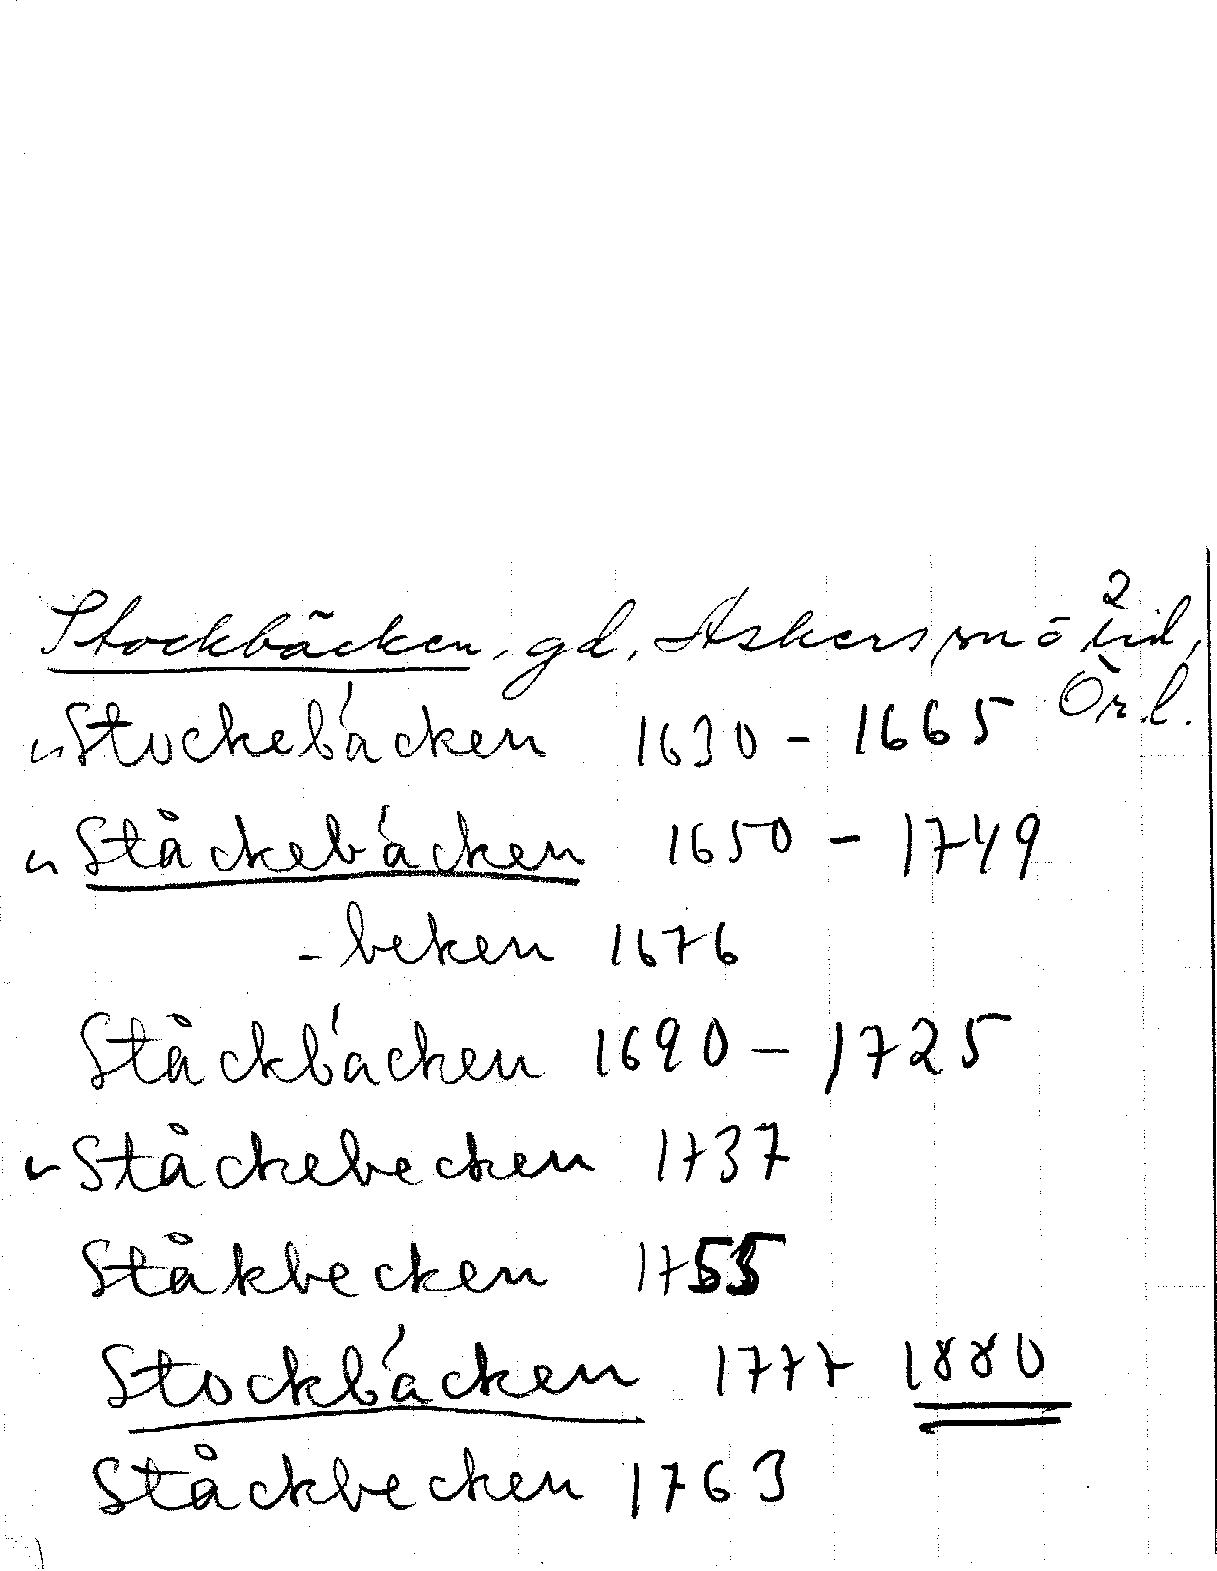 Stockbäcken, gd, Askers sn Ö 2
Örl.
Stockebäcken 1630 - 1665
Ståckebäcken 1650 - 1749
- beken 1676
Ståckbäcken 1690 - 1725
Ståckebecken 1737
Ståkbecken 1755
Stockbäcken 1777 1880
Ståckbecken 1763